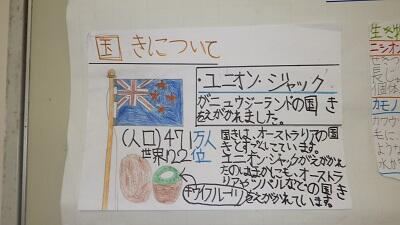 国きについて
・ユニオン・ジャック
がニュウジーランドの国き
をえがかれました。
(人口)471万人
世界122位
国きは、オーストラリアの国
きとすごくにています。
ユニオン・ジャックがえがかれ
たのはほかにも、オースト
ラリアやツバルなどの国き
をえがかれています。
キウイフルーツ
生き物
ニシオン
カモノ
カワウ
毛に
ような
水か